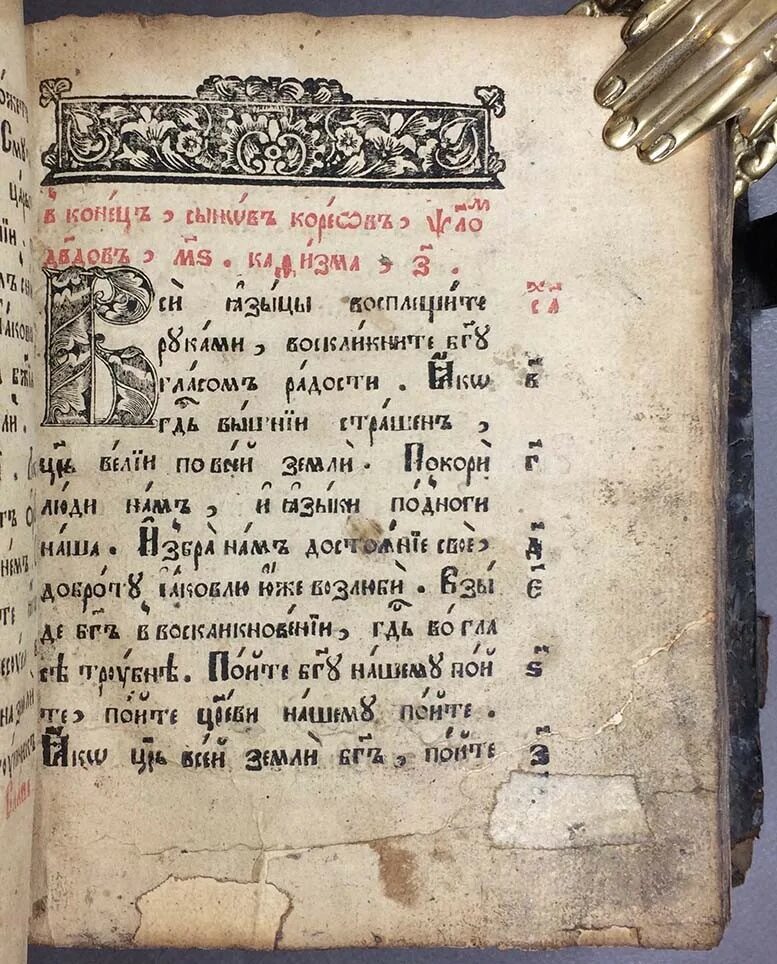 в конецъ, сынѡвъ корсѡвъ, ѱало́м
дв҃довъ, м҃ѕ. каѳи́зма, з҃.
Вси̑ ѩзы́цы восплещи́те
рука́ми, воскли́кните бг҃у
гла́сомъ ра́дости. Ꙗ҆́кѡ
гдⷭ҇ь вы́шнїи стра́шенъ,
цр҃ь ве́лїи по все́й землѝ. Покорѝ
лю́ди на́мъ, и҆ ѩзы́ки по́дноги
на́ша. И҆збра̀ на́мъ достоѧ́нїе своѐ,
добро́ту і҆а́ковлю ю҆́же возлюбѝ. Взы́
де бг҃ъ в воскликнове́нїи, гдⷭ҇ь во́ гла
сѣ тро́убнѣ. По́йте бг҃у на́шему по́й
те, по́йте цр҃еви на́шему по́йте.
Ꙗ҆́кѡ цр҃ь все́й землѝ бг҃ъ, по́йте
в҃
г҃
д҃
є҃
ѕ҃
з҃